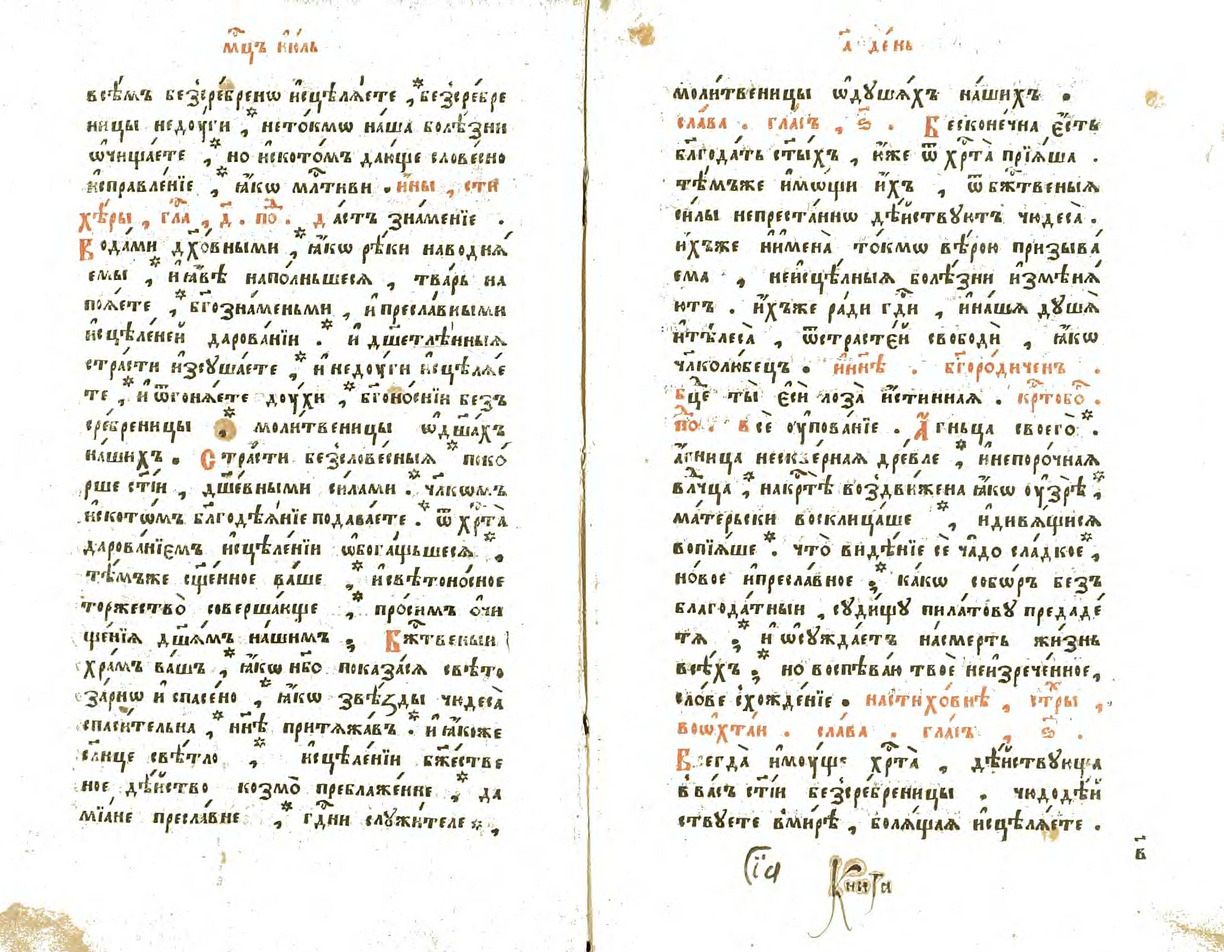 мⷭ҇цъ їю́ль
всѣ́мъ безсре́бренѡ и҆сцѣлѧ́ете , * безсре́бре
ницы неду́ги , * нето́кмѡ на́ша болѣ́зни
ѡ҆чища́ете , * но и҆ско́томъ даю́ще слове́сно
и҆справле́нїе , * ꙗ҆́кѡ млⷭ҇тиви . и҆́ны , сти
хѣ́ры , гла , д҃ . поⷣ . да́стъ зна́менїе .
Вода́ми дх҃о́вными , * ꙗ҆́кѡ рѣ́ки наводнѧ́
емы , * и҆ꙗ҆́вѣ напо́лньшесѧ , тва́рь на
поѧ́ете , * бг҃озна́меньми , и҆пресла́вными
и҆сцѣле́ней дарова́нїи . * и҆ дш҃етлѣ́нныѧ
стра́сти и҆зсуша́ете , * и҆неду́ги и҆сцѣлѧ́е
те , * и҆ ѿгонѧ́ете ду́хи , * бг҃оно́сни безъ
сре́бреницы . моли́твеницы ѡ҆дш҃а́хъ
на́шихъ . Стра́сти безслове́сныѧ * поко́
рше ст҃і́и , дш҃е́вными си́лами . * чл҃кѡмъ
и҆ско́тѡмъ благодѣѧ́нїе подава́ете . * ѿ хрⷭ҇та̀
дарова́нїемъ и҆сцѣле́нїи ѡ҆богащьшесѧ , *
тѣ́мъже сщ҃е́нное ва́ше , * и҆свѣтоно́сное
торжество̀ соверша́юще , * про́симъ ѻ҆чи
ще́нїѧ дш҃а́мъ на́шимъ , Бжⷭ҇твеныи
хра́мъ ва́шъ , * ꙗ҆́кѡ нб҃о показа́сѧ свѣто
за́рнѡ и҆ спасе́но , * ꙗ҆́кѡ звѣ́зды чюдеса̀
спаси́тельна , * нн҃ѣ притѧжа́въ . * и҆ ꙗ҆́коже
сл҃нце свѣ́тло , * и҆сцѣле́нїи бжⷭ҇тве
ное дѣ́йство козмо̀ преблаже́нне , * да
мїа́не пресла́вне , * гдⷭ҇ни служи́теле * ,
а҃ де́нь
моли́твеницы ѡ҆душа́хъ на́шихъ .
сла́ва . гла́съ , ѕ҃ . Безконе́чна є҆́сть
благода́ть ст҃ы́хъ , ю҆́же ѿ хрⷭ҇та̀ прїѧ́ша .
тѣ́мъже и҆́мощи и҆́хъ , ѿ бжⷭ҇твеныѧ
си́лы непреста́ннѡ дѣ́йствуютъ чюдеса̀ .
и҆́хъже и҆имена̀ то́кмѡ вѣ́рою призыва́
ема , неисцѣ́лныѧ болѣ́зни и҆змѣнѧ́
ютъ . и҆́хъже ра́ди гдⷭ҇и , и҆на́шѧ ду́шѧ
и҆тѣлеса̀ , ѿстрасте́й свободѝ , ꙗ҆́кѡ
чл҃колю́бецъ . и҆ны́нѣ . бг҃оро́диченъ .
бц҃е ты̀ є҆сѝ лоза̀ и҆́стинная . крⷭ҇тобоⷢ .
поⷣ . все́ ᲂу҆пова́нїе . А҆́гньца своего̀ * .
а҆́гница неск&верная дре́вле , * и҆непоро́чная
влⷣчца , * на крⷭ҇тѣ̀ воздви́жена ꙗ҆́кѡ ᲂу҆зрѣ̀ , *
ма́терьски восклица́ше , * и҆дивѧ́щисѧ
вопїѧ́ше * . что̀ видѣ́нїе се́ ча́до сла́дкое * ,
но́вое и҆пресла́вное , * ка́кѡ собо́ръ безъ
благода́тныи , суди́щу пила́тову предаде́
тѧ , * и҆ ѡ҆сужда́етъ на́смерть жи́знь
всѣ́хъ , * но воспѣва́ю твоѐ неизрече́нное ,
сло́ве схожде́нїе . настихо́внѣ , стⷯры ,
воѡхтаи . сла́ва . гла́съ , ѕ҃ .
Всегда̀ и҆моуще хрⷭ҇та̀ , дѣ́йствующа
в ва́съ ст҃і́и безсре́бреницы . чюдодѣ́й
ствуете вми́рѣ , болѧ́щаѧ и҆сцѣлѧ́ете .
в҃
Сїа Книга